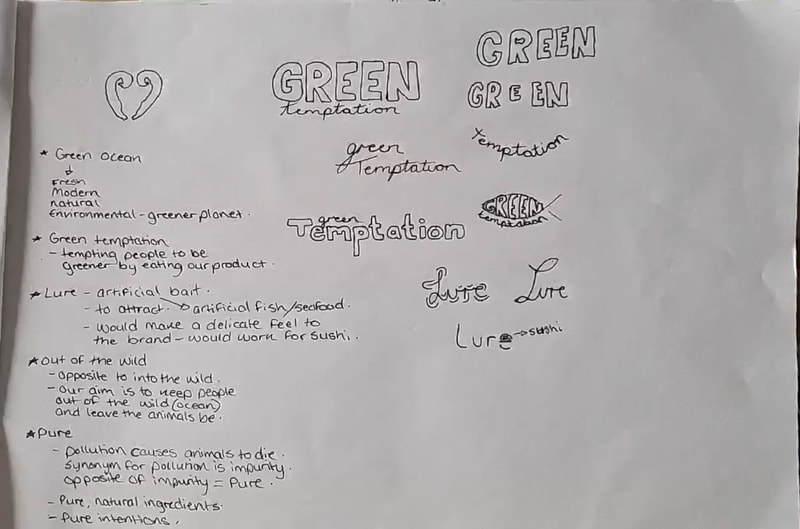 * Green Ocean
Fresh
Modern
natural
Environmental - greener planet.
* Green temptation
- tempting people to be
greener by eating our product.
* Lure - artificial bait.
- to attract. artificial fish/seafood.
- would make a delicate feel to
the brand - would work for sushi.
* Out of the wild
- opposite to into the wild.
- our aim is to keep people
out of the wild (ocean)
and leave the animals be.
* Pure
- pollution causes animals to die.
synonym for pollution is impurity.
opposite of impurity = Pure.
- Pure, natural ingredients.
- Pure intentions.
GREEN
temptation
green
Temptation
green
Temptation
GREEN
GREEN
Temptation
GREEN
temptation
Lure Lure
Lure → sushi